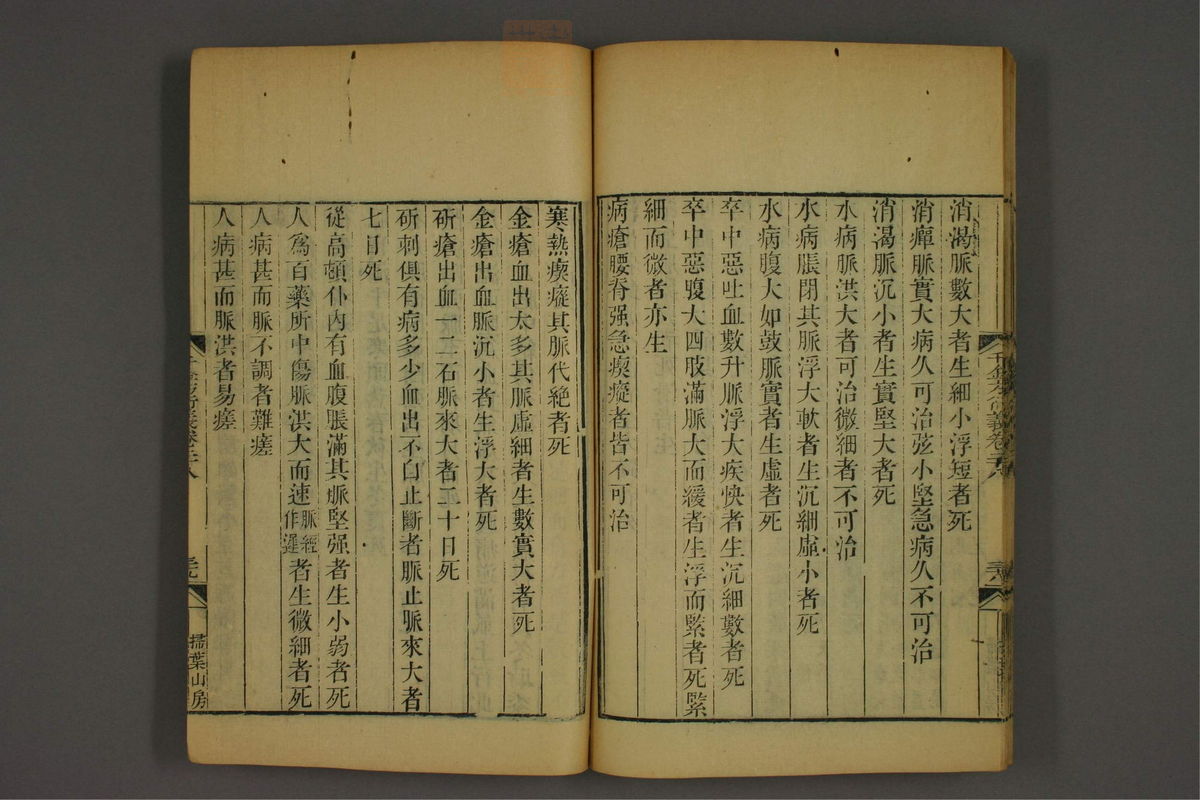 消渴脈數大者生細小浮短者死
消癉脈實大病久可治弦小堅急病久不可治
消渴脈沉小者生實堅大者死
水病脈洪大者可治微細者不可治
水病脹閉其脈浮大軟者生沉細虛小者死
水病腹大如鼓脈實者生虛者死
卒中惡吐血數升脈浮大疾快者生沉細數者死
卒中惡腹大四肢滿脈大而緩者生浮而緊者死緊
細而微者亦生
病瘡腰脊强急瘈瘲者皆不可治
寒熱瘈瘲其脈代絶者死
金瘡血出太多其脈虛細者生數實大者死
金瘡出血脈沉小者生浮大者死
斫瘡出血一二石脈來大者二十日死
斫刺俱有病多少血出不自止斷者脈止脈來大者
七日死
從高頓仆內有血腹脹滿其脈堅强者生小弱者死
人爲百藥所中傷脈洪大而速脈經作遲者生微細者死
人病甚而脈不調者難瘥
人病甚而脈洪者易瘥
千金方衍義卷二十八
掃葉山房